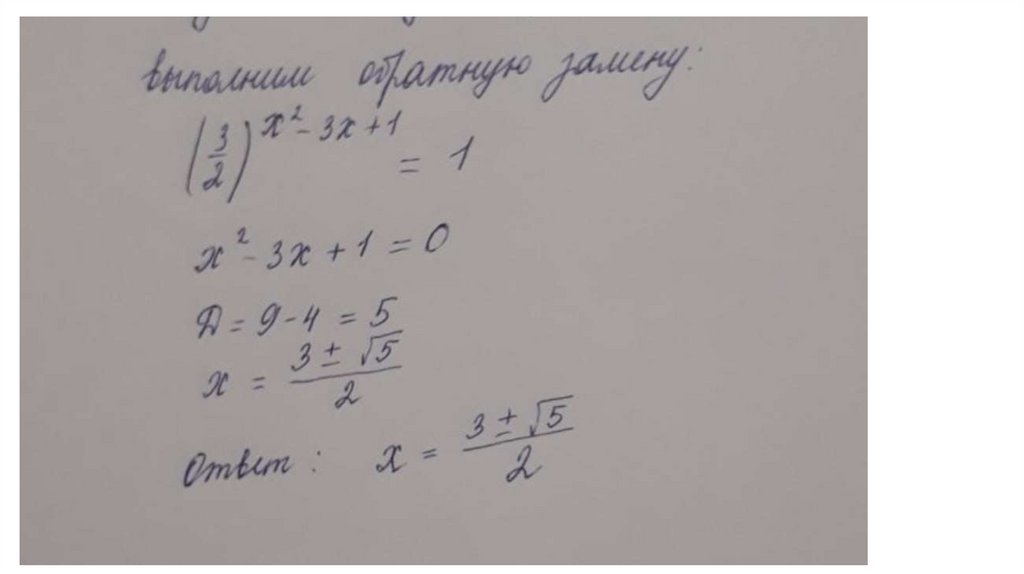 выполним обратную замену:
(3/2)^(x² - 3x + 1) = 1
x² - 3x + 1 = 0
Д = 9 - 4 = 5
x = (3 ± √5)/2
Ответ: x = (3 ± √5)/2